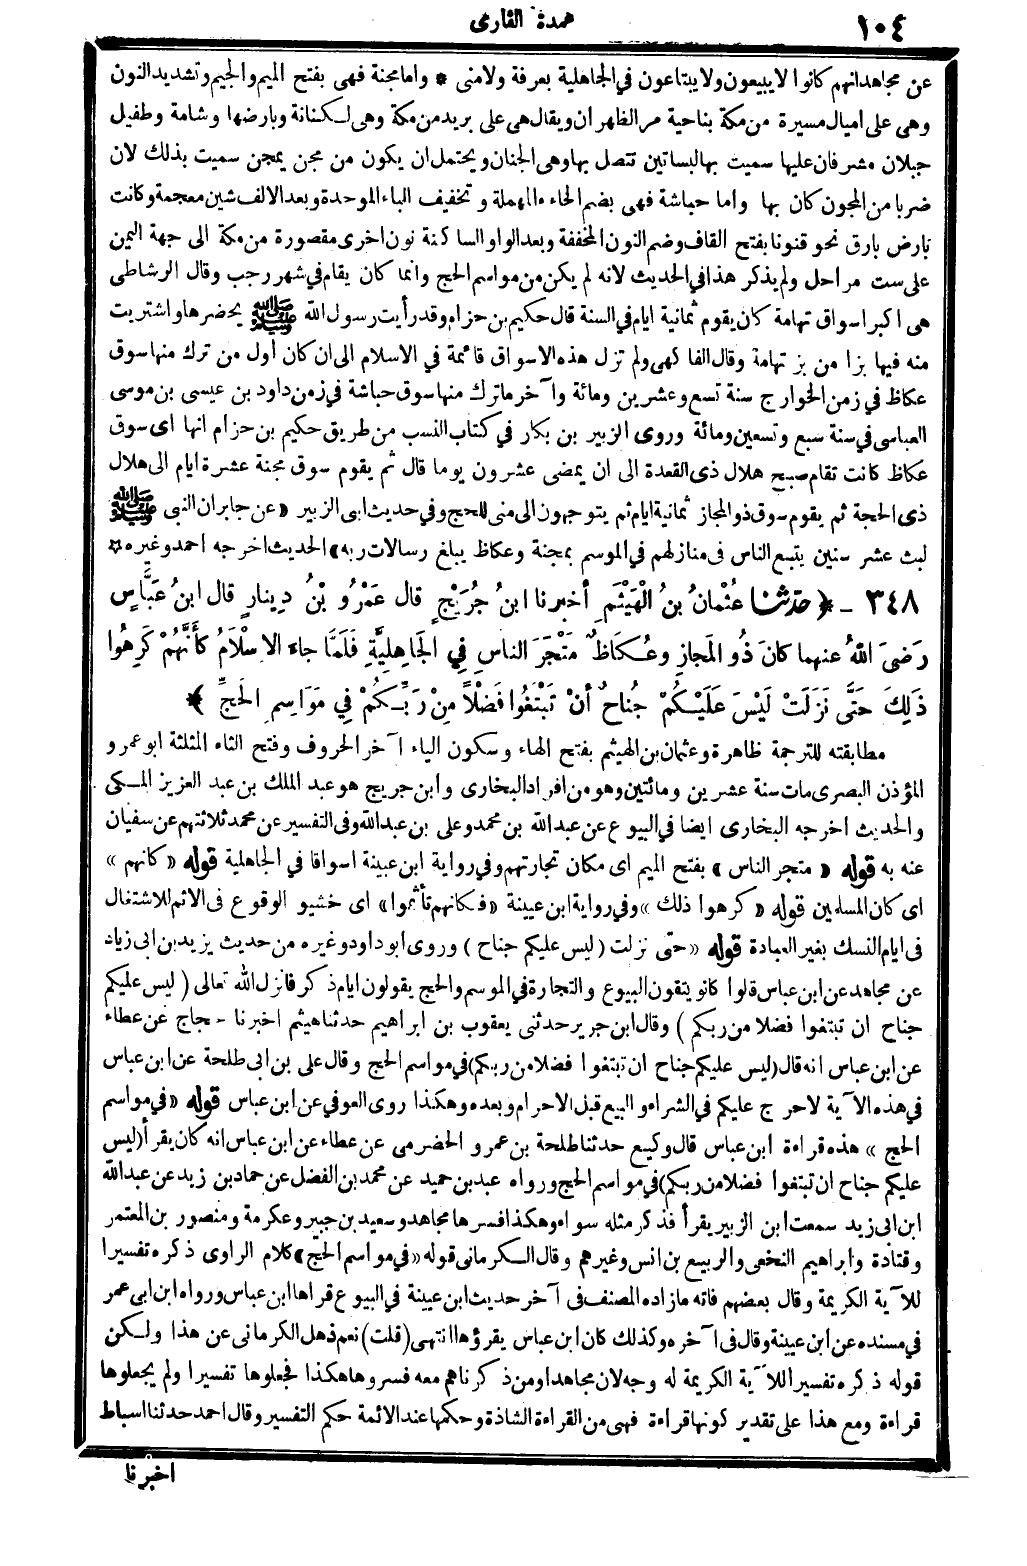 ١٠٤
عمدة القارى
عن مجاهد انهم كانوا لا يبيعون ولا يبتاعون في الجاهلية بعرفة ولا منى * واما مجنة فهى بفتح الميم والجيم وتشديد النون
وهى على اميال مسيرة من مكة بناحية مر الظهران ويقال هى على بريد من مكة وهى لكنانة وبارضها وشامة وطفيل
جبلان مشرفان عليها سميت بها لبساتين تتصل بها وهى الجنان ويحتمل ان يكون من مجن يمجن سميت بذلك لان
ضربا من المجون كان بها واما حباشة فهى بضم الحاء المهملة وتخفيف الباء الموحدة وبعد الالف شين معجمة وكانت
بارض بارق نحو قنونا بفتح القاف وضم النون المخففة وبعد الواو الساكنة نون اخرى مقصورة من مكة الى جهة اليمن
على ست مراحل ولم يذكر هذا في الحديث لانه لم يكن من مواسم الحج وانما كان يقام في شهر رجب وقال الرشاطى
هى اكبر اسواق تهامة كان يقوم ثمانية ايام في السنة قال حكيم بن حزام وقد رأيت رسول الله ﷺ يحضرها واشتريت
منه فيها بزا من بز تهامة وقال الفاكهى ولم تزل هذه الاسواق قائمة في الاسلام الى ان كان أول من ترك منها سوق
عكاظ في زمن الخوارج سنة تسع وعشرين ومائة وآخر ما ترك منها سوق حباشة في زمن داود بن عيسى بن موسى
العباسى في سنة سبع وتسعين ومائة وروى الزبير بن بكار في كتاب النسب من طريق حكيم بن حزام انها اى سوق
عكاظ كانت تقام صبح هلال ذى القعدة الى ان يمضى عشرون يوما قال ثم يقوم سوق مجنة عشرة ايام الى هلال
ذى الحجة ثم يقوم سوق ذو المجاز ثمانية ايام ثم يتوجهون الى منى للحج وفي حديث ابى الزبير «عن جابر ان النبى ﷺ
لبث عشر سنين يتبع الناس فى منازلهم في الموسم بمجنة وعكاظ يبلغ رسالات ربه» الحديث اخرجه احمد وغيره ☆
٣٤٨ - ﴿ حَدَّثَنَا عُثْمَانُ بنُ الْهَيْثَمِ أخبرنا ابنُ جُرَيْجٍ قال عَمْرُو بْنُ دِينارٍ قال ابنُ عَبَّاسٍ
رَضِىَ اللهُ عنهما كانَ ذُو المَجازِ وعُكَاظٌ مَتْجَرَ الناسِ فِي الجَاهِلِيَّةِ فَلَمَّا جاءَ الاِسْلَامُ كأَنَّهُمْ كَرِهُوا
ذَلِكَ حَتَّى نَزَلَتْ لَيْسَ عَلَيْكُمْ جُناحٌ أنْ تَبْتَغُوا فَضْلاً مِنْ رَبِّكُمْ فِي مَوَاسِمِ الحَجِّ ﴾
مطابقته للترجمة ظاهرة وعثمان بن الهيثم بفتح الهاء وسكون الياء آخر الحروف وفتح الثاء المثلثة ابو عمرو
المؤذن البصرى مات سنة عشرين ومائتين وهو من افراد البخارى وابن جريج هو عبد الملك بن عبد العزيز المكى
والحديث اخرجه البخارى ايضا في البيوع عن عبدالله بن محمد وعلى بن عبدالله وفى التفسير عن محمد ثلاثتهم عن سفيان
عنه به قوله «متجر الناس» بفتح الميم اى مكان تجارتهم وفي رواية ابن عيينة اسواقا في الجاهلية قوله «كانهم»
اى كان المسلمين قوله «كرهوا ذلك» وفي رواية ابن عيينة «فكانهم تأثموا» اى خشيو الوقوع فى الاثم للاشتغال
فى ايام النسك بغير العبادة قوله «حتى نزلت (ليس عليكم جناح) وروى ابو داود وغيره من حديث يزيد بن ابى زياد
عن مجاهد عن ابن عباس قلوا كانو يتقون البيوع والتجارة في الموسم والحج يقولون ايام ذكر فانزل الله تعالى (ليس عليكم
جناح ان تبتغوا فضلا من ربكم) وقال ابن جرير حدثنى يعقوب بن ابراهيم حدثنا هيثم اخبرنا - حجاج عن عطاء
عن ابن عباس انه قال (ليس عليكم جناح ان تبتغوا فضلا من ربكم) في مواسم الحج وقال على بن ابى طلحة عن ابن عباس
في هذه الآية لا حرج عليكم في الشراء والبيع قبل الاحرام وبعده وهكذا روى العوفي عن ابن عباس قوله «في مواسم
الحج» هذه قراءة ابن عباس قال وكيع حدثنا طلحة بن عمرو الحضرمى عن عطاء عن ابن عباس انه كان يقرأ (ليس
عليكم جناح ان تبتغوا فضلا من ربكم) في مواسم الحج ورواه عبد بن حميد عن محمد بن الفضل عن حماد بن زيد عن عبدالله
ابن ابى زيد سمعت ابن الزبير يقرأ فذكر مثله سواء وهكذا فسرها مجاهد وسعيد بن جبير وعكرمة ومنصور بن المعتمر
وقتادة وابراهيم النخعى والربيع بن انس وغيرهم وقال الكرمانى قوله «في مواسم الحج» كلام الراوى ذكره تفسيرا
للآية الكريمة وقال بعضهم فاته مازاده المصنف فى آخر حديث ابن عيينة في البيوع قراها ابن عباس ورواه ابن ابى عمر
في مسنده عن ابن عيينة وقال فى آخره وكذلك كان ابن عباس يقرؤها انتهى (قلت) نعم ذهل الكرمانى عن هذا ولكن
قوله ذكره تفسيرا للآية الكريمة له وجه لان مجاهدا ومن ذكرناهم معه فسروها هكذا فجعلوها تفسيرا ولم يجعلوها
قراءة ومع هذا على تقدير كونها قراءة فهى من القراءة الشاذة وحكمها عند الائمة حكم التفسير وقال احمد حدثنا اسباط
اخبرنا